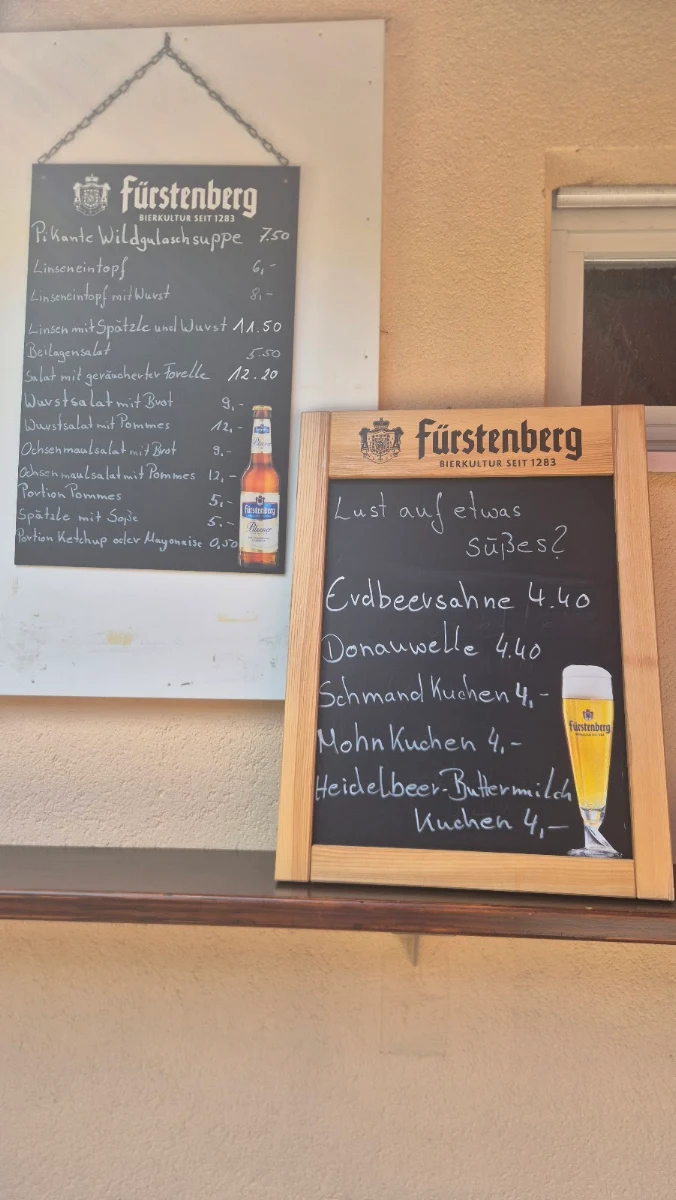 Fürstenberg
BIERKULTUR SEIT 1283
Pikante Wildgulaschsuppe 7.50
Linseneintopf 6,-
Linseneintopf mit Wurst 8,-
Linsen mit Spätzle und Wurst 11.50
Beilagensalat 5.50
Salat mit geräucherter Forelle 12.20
Wurstsalat mit Brot 9,-
Wurstsalat mit Pommes 12,-
Ochsenmaulsalat mit Brot 9,-
Ochsenmaulsalat mit Pommes 12,-
Portion Pommes 5,-
Spätzle mit Soße 5.-
Portion Ketchup oder Mayonaise 0,50
Fürstenberg
Pilsner
Fürstenberg
BIERKULTUR SEIT 1283
Lust auf etwas
süßes?
Erdbeersahne 4.40
Donauwelle 4.40
Schmand Kuchen 4,-
Mohn Kuchen 4,-
Heidelbeer-Buttermilch
Kuchen 4,-
Fürstenberg